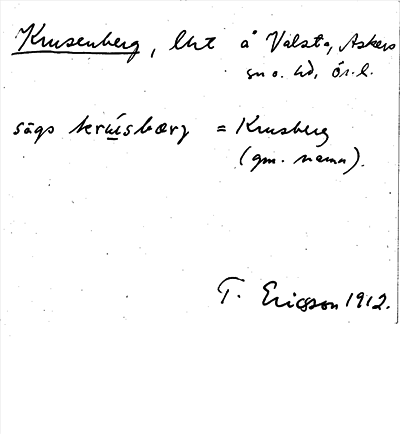 Krusenberg, lht å Valsta, Askers
sn o. hd, ör. l.
sägs krúsbærj = Krusberg
(gm. namn).
T. Ericsson 1912.